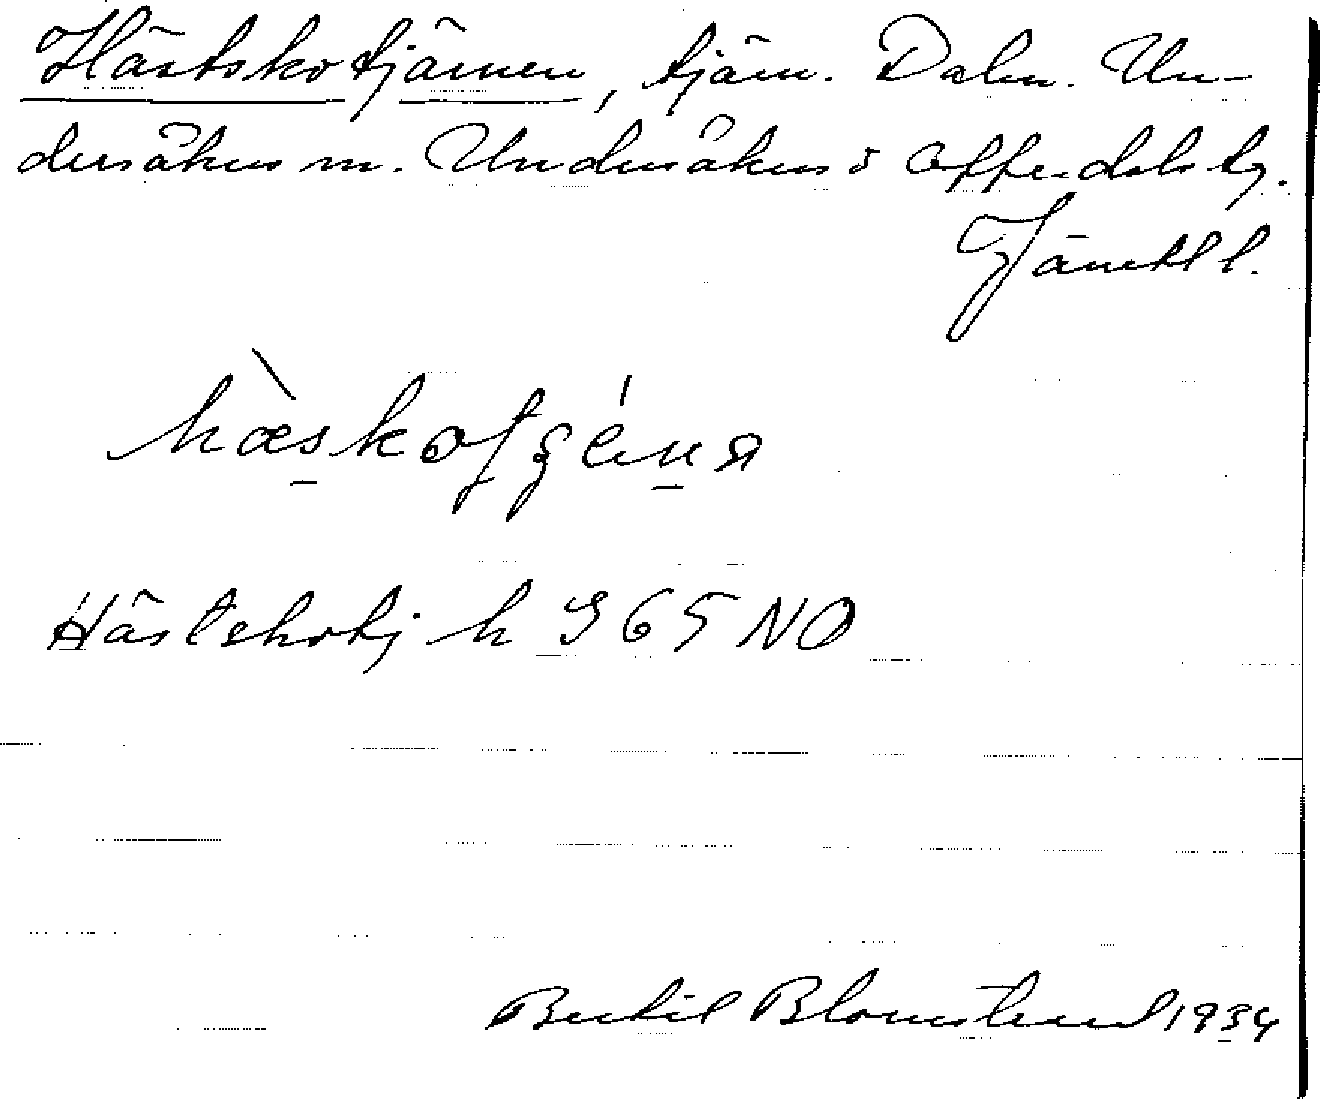 Hästskotjärnen, tjärn. Dalen. Un-
dersåkers sn. Undersåkers o Offerdals tg.
Jämtl l.
hæskoʃʒénɐ
Hästskotj h 965 NO
Bertil Blomstrand 1934